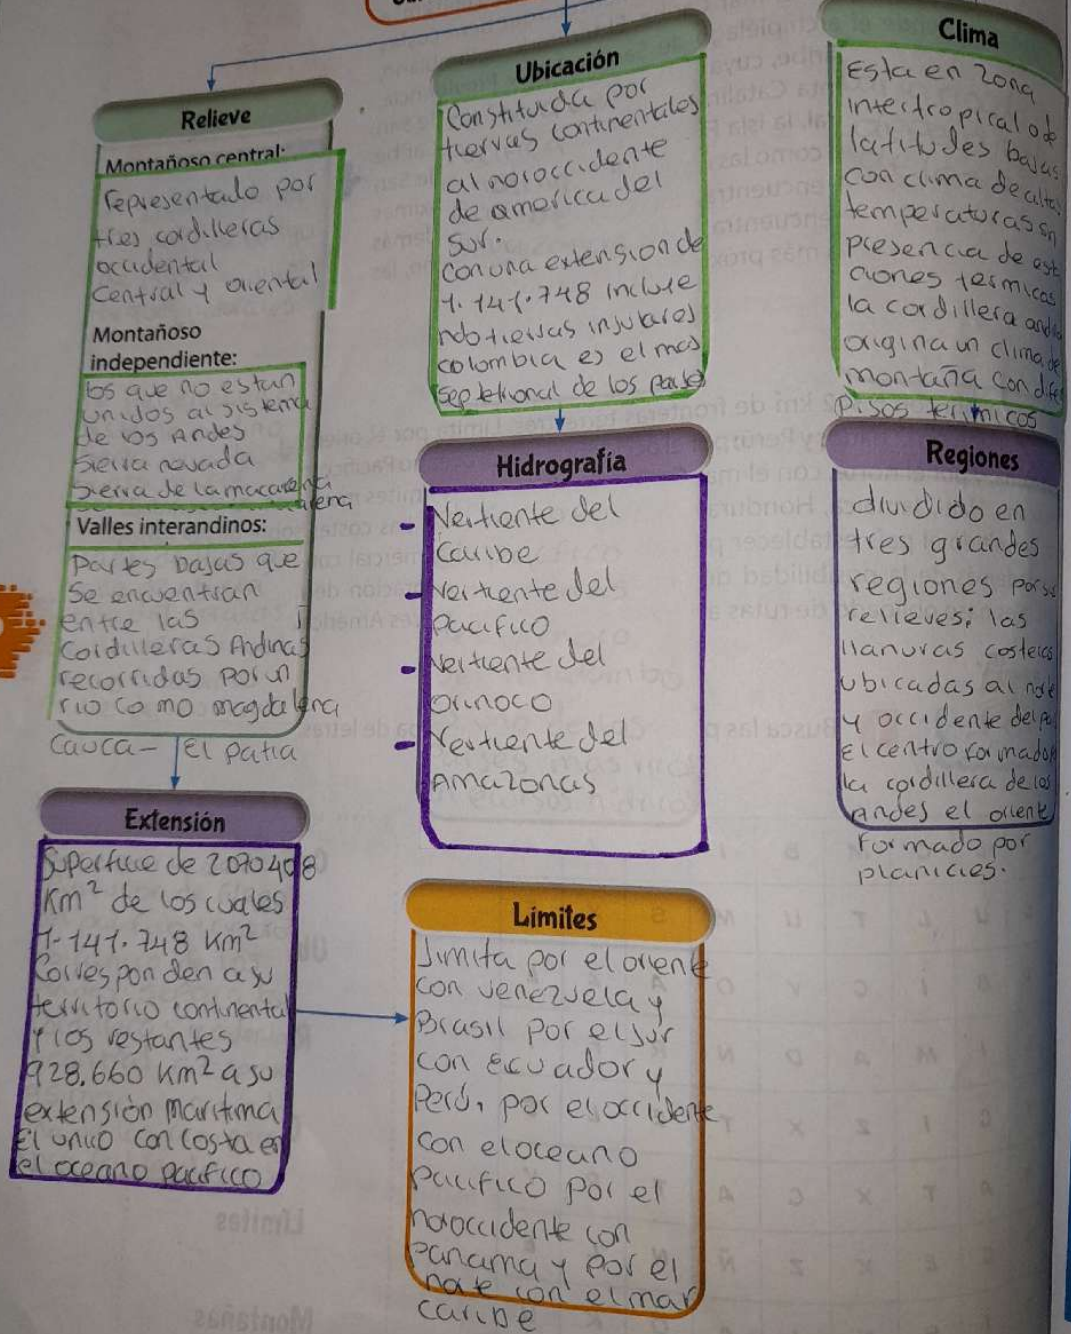 Relieve
Montañoso central:
representado por
tres cordilleras
occidental
Central y oriental
Montañoso
independiente:
los que no estan
unidos al sistema
de los Andes
Sierra nevada
Sierra de la macarena
Valles interandinos:
partes bajas que
Se encuentran
entre las
Cordilleras Andinas
recorridas por un
rio como magdalena
Cauca - El patia
Extensión
Superficie de 2070408
Km² de los cuales
1.141.748 Km²
Corresponden a su
territorio continental
y los restantes
928.660 Km² a su
extensión maritima
El unico con costa en
el oceano pacifico
Ubicación
Constituida por
tierras continentales
al noroccidente
de america del
Sur.
con una extension de
1.141.748 incluye
ndo tierras insulares
colombia es el mas
septetional de los paises
Hidrografía
- Vertiente del
Caribe
- Vertiente del
Pacifico
- Vertiente del
Orinoco
- Vertiente del
Amazonas
Límites
limita por el oriente
con venezuela y
Brasil por el sur
con ecuador y
Perú, por el occidente
con el oceano
Pacifico por el
noroccidente con
panama y por el
norte con el mar
caribe
Clima
Esta en zona
intertropical o de
latitudes bajas
con clima de altas
temperaturas sin
presencia de est
aciones termicas
la cordillera andina
origina un clima de
montaña con dife
pisos termicos
Regiones
dividido en
tres grandes
regiones por su
relieves: las
llanuras costeras
ubicadas al norte
y occidente del
El centro formado
la cordillera de los
Andes el oriente
Formado por
planicies.